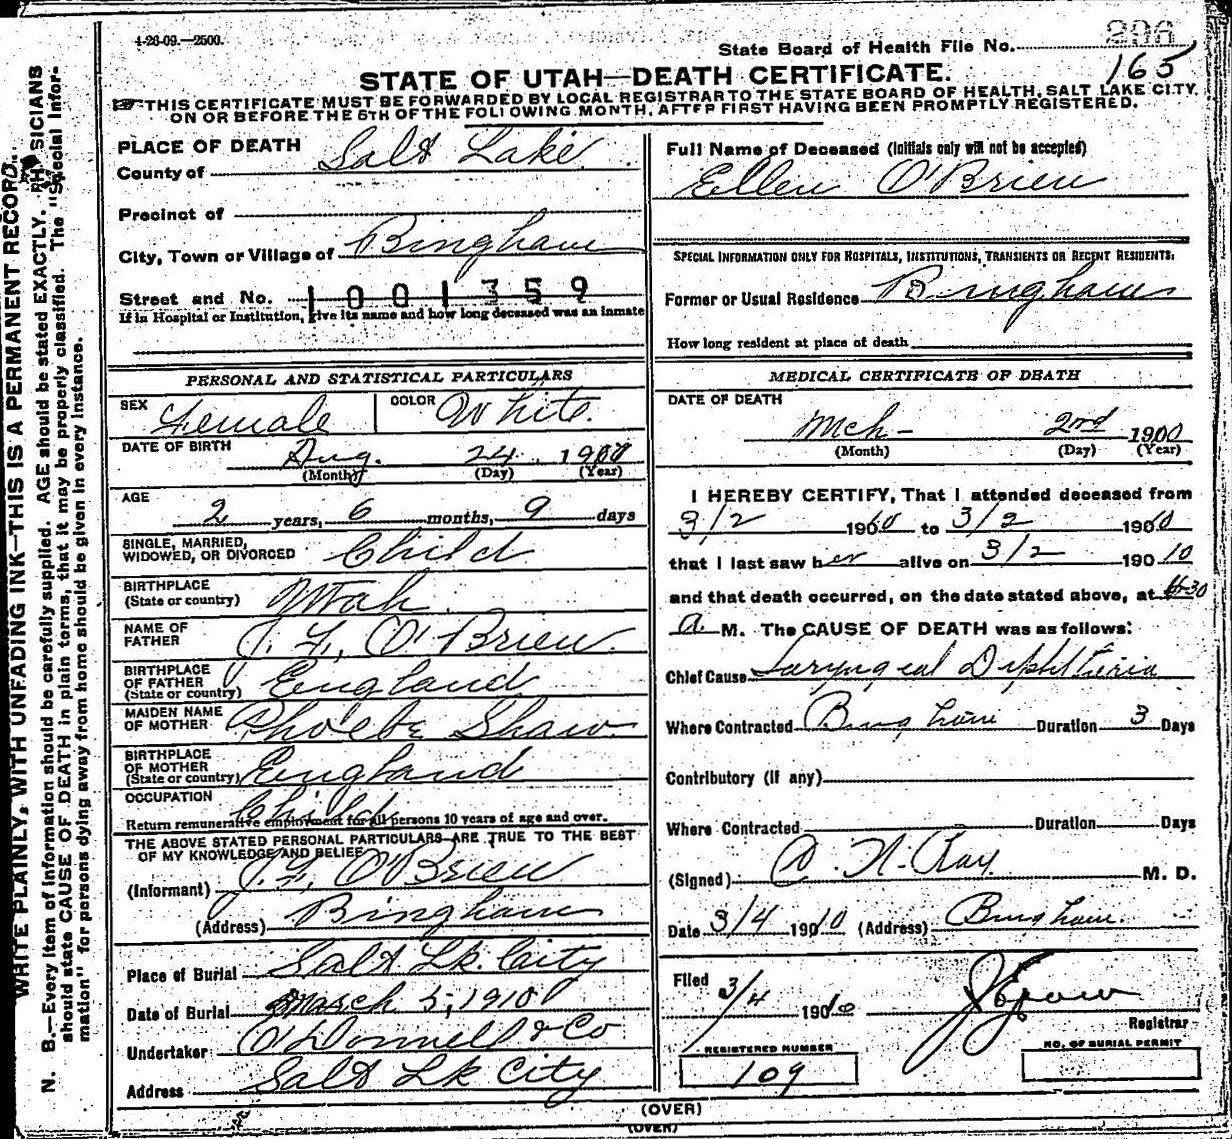 4-26-09.—2500.
State Board of Health File No. 296
165
STATE OF UTAH—DEATH CERTIFICATE.
THIS CERTIFICATE MUST BE FORWARDED BY LOCAL REGISTRAR TO THE STATE BOARD OF HEALTH, SALT LAKE CITY,
ON OR BEFORE THE 5TH OF THE FOLLOWING MONTH, AFTER FIRST HAVING BEEN PROMPTLY REGISTERED.
WRITE PLAINLY, WITH UNFADING INK—THIS IS A PERMANENT RECORD.
N. B.—Every item of information should be carefully supplied. AGE should be stated EXACTLY. PHYSICIANS
should state CAUSE OF DEATH in plain terms, that it may be properly classified. The "Special Infor-
mation" for persons dying away from home should be given in every instance.
PLACE OF DEATH
County of Salt Lake
Precinct of
City, Town or Village of Bingham
Street and No. 1001359
If in Hospital or Institution, give its name and how long deceased was an inmate
PERSONAL AND STATISTICAL PARTICULARS
SEX Female COLOR White.
DATE OF BIRTH Aug. 24 190
(Month) (Day) (Year)
AGE
2 years, 6 months, 9 days
SINGLE, MARRIED,
WIDOWED, OR DIVORCED Child
BIRTHPLACE
(State or country) Utah
NAME OF
FATHER J. F. O'Brien
BIRTHPLACE
OF FATHER
(State or country) England
MAIDEN NAME
OF MOTHER Phoebe Shaw
BIRTHPLACE
OF MOTHER
(State or country) England
OCCUPATION Child
Return remunerative employment for all persons 10 years of age and over.
THE ABOVE STATED PERSONAL PARTICULARS ARE TRUE TO THE BEST
OF MY KNOWLEDGE AND BELIEF
(Informant) J. F. O'Brien
(Address) Bingham
Place of Burial Salt Lk. City
Date of Burial March 5, 1910
Undertaker O'Donnell & Co
Address Salt Lk City
Full Name of Deceased (Initials only will not be accepted)
Ellen O'Brien
SPECIAL INFORMATION ONLY FOR HOSPITALS, INSTITUTIONS, TRANSIENTS OR RECENT RESIDENTS:
Former or Usual Residence Bingham
How long resident at place of death
MEDICAL CERTIFICATE OF DEATH
DATE OF DEATH
Mch- 2nd 1910
(Month) (Day) (Year)
I HEREBY CERTIFY, That I attended deceased from
3/2 1910 to 3/2 1910
that I last saw her alive on 3/2 190 10
and that death occurred, on the date stated above, at 6-30
a. M. The CAUSE OF DEATH was as follows:
Chief Cause Laryngeal Diphtheria
Where Contracted Bingham Duration 3 Days
Contributory (if any)
Where Contracted Duration Days
(Signed) A. N. Ray M. D.
Date 3/4 1910 (Address) Bingham.
Filed 3/4 1910
Registrar
REGISTERED NUMBER
109
NO. OF BURIAL PERMIT
(OVER)
(OVER)